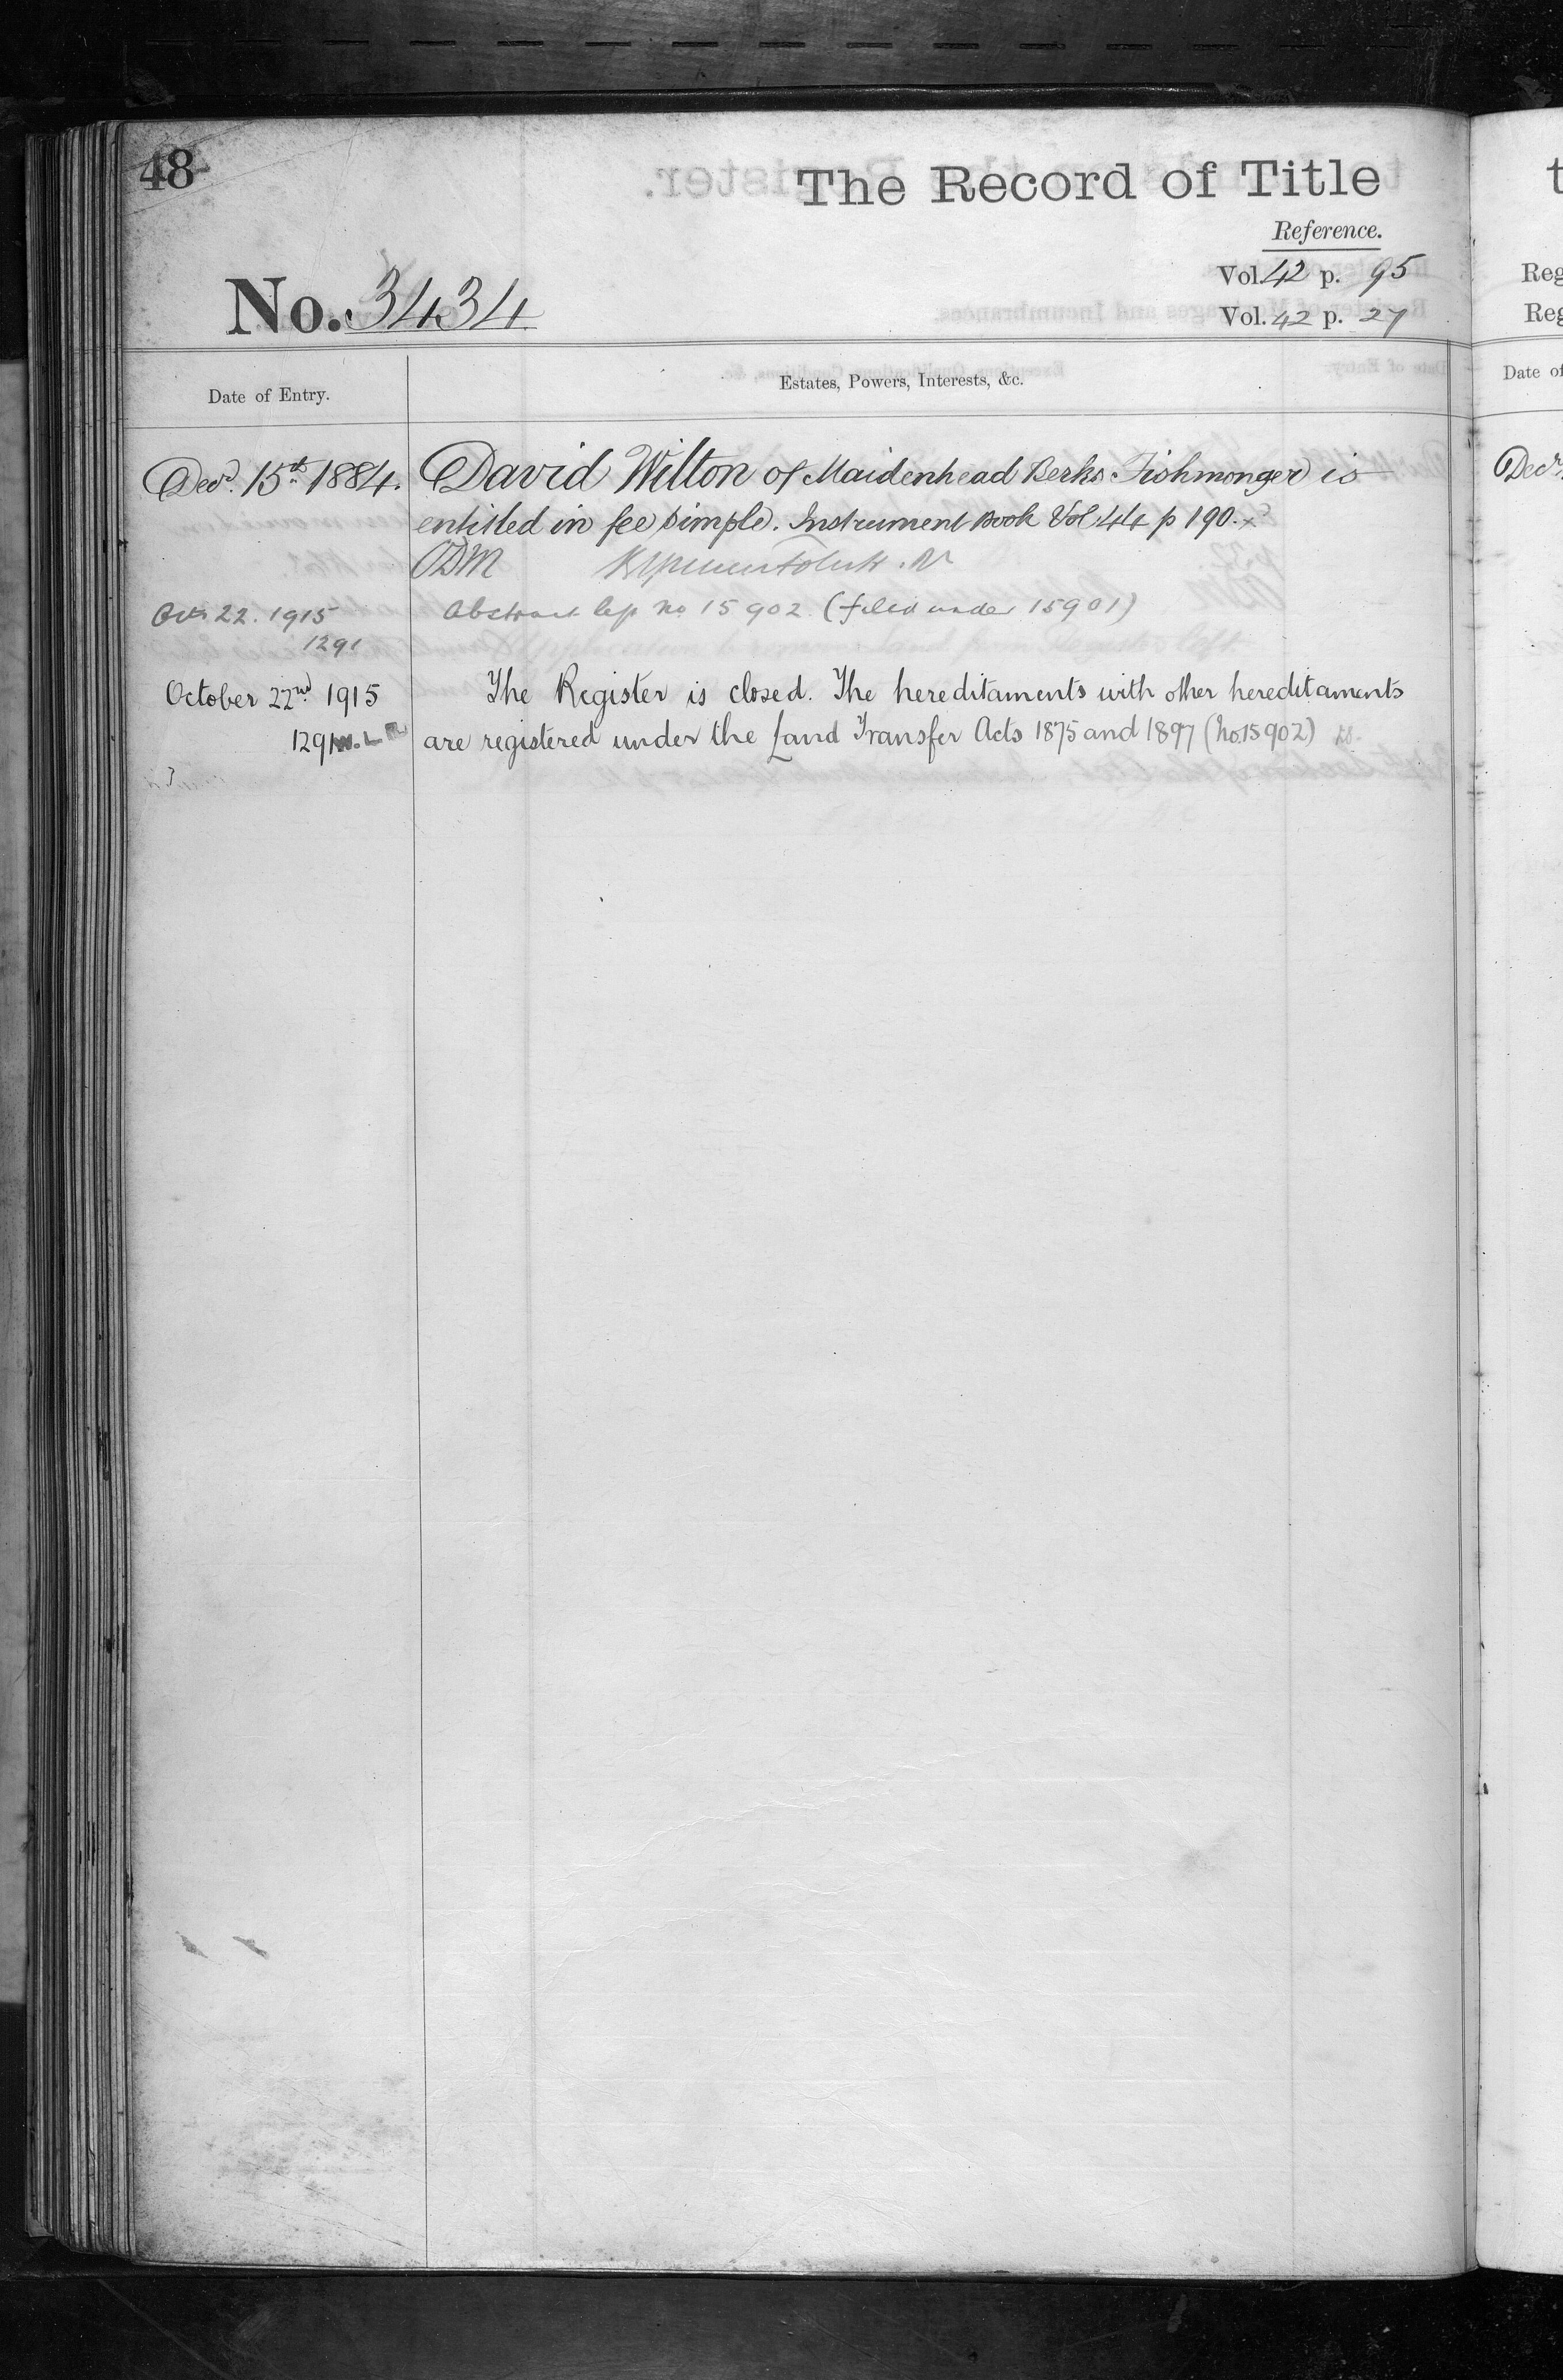 48
The Record of Title
Reference.
Vol. 42 p. 95
No. 3434
Vol. 42 p. 27
Date of Entry.
Estates, Powers, Interests, &c.
Decr. 15th 1884. David Wilton of Maidenhead Berks Fishmonger is
entitled in fee simple. Instrument Book Vol 44 p 190. x
ODM
Oct 22. 1915 Abstract no 15902 (filed under 15901)
1291
October 22nd 1915 The Register is closed. The hereditaments with other hereditaments
1291 are registered under the Land Transfer Acts 1875 and 1897 (No 15902)
t
Reg
Reg
Date of
Decr.